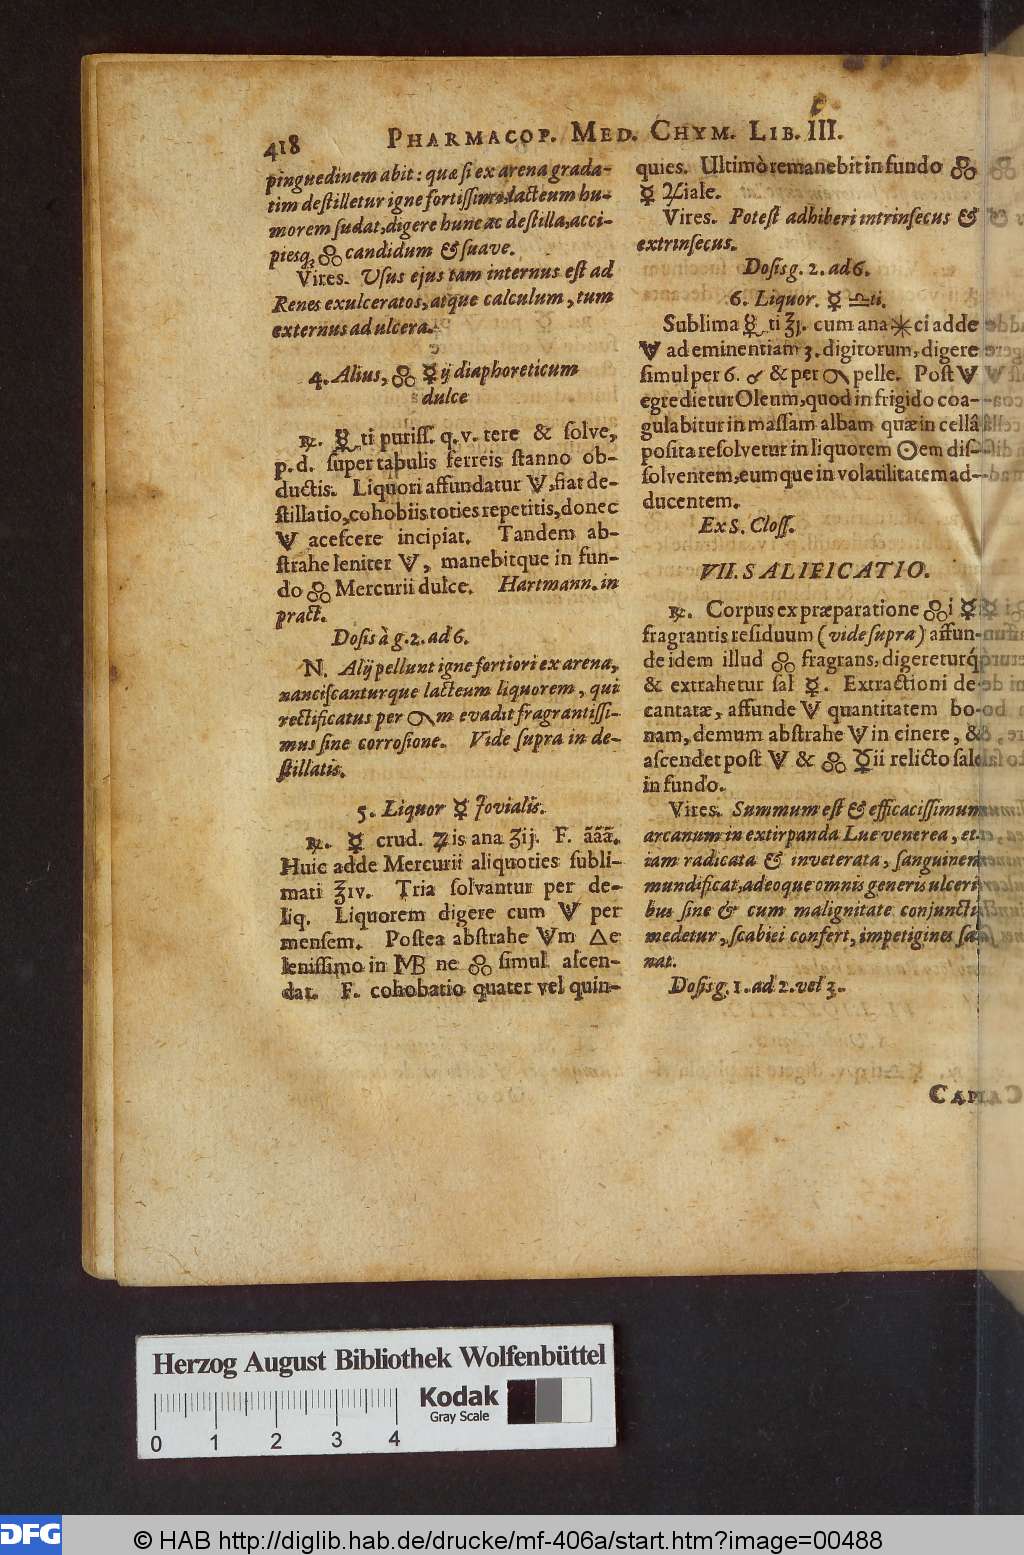 418 PHARMACOP. MED. CHYM. LIB. III.
pinguedinem abit: quæ si ex arena grada-
tim destilletur igne fortissimo, lacteum hu-
morem sudat, digere hunc ac destilla, acci-
piesq; candidum & suave.
Vires. Usus ejus tam internus est ad
Renes exulceratos, atque calculum, tum
externus ad ulcera.
4. Alius, ☿ij diaphoreticum
dulce
℞. ti puriss. q. v. tere & solve,
p. d. super tabulis ferreis stanno ob-
ductis. Liquori affundatur, fiat de-
stillatio, cohobiis toties repetitis, donec
acescere incipiat. Tandem ab-
strahe leniter, manebitque in fun-
do Mercurii dulce. Hartmann. in
pract.
Dosis à g. 2. ad 6.
N. Alij pellunt igne fortiori ex arena,
nanciscanturque lacteum liquorem, qui
rectificatus per m evadit fragrantissi-
mus sine corrosione. Vide supra in de-
stillatis.
5. Liquor ☿ Jovialis.
℞. ☿ crud. ♃is ana ʒij. F. ããã.
Huic adde Mercurii aliquoties subli-
mati ʒiv. Tria solvantur per de-
liq. Liquorem digere cum per
mensem. Postea abstrahe m △e
lenissimo in MB ne simul ascen-
dat. F. cohobatio quater vel quin-
quies. Ultimò remanebit in fundo
☿ ♃iale.
Vires. Potest adhiberi intrinsecus &
extrinsecus.
Dosis g. 2. ad 6.
6. Liquor. ☿ ♎ti.
Sublima ti ʒj. cum ana ✳ci adde
ad eminentiam 3. digitorum, digere
simul per 6. & per pelle. Post
egredietur Oleum, quod in frigido coa-
gulabitur in massam albam quæ in cellâ
posita resolvetur in liquorem ☉em dis-
solventem, eumque in volatilitatem ad-
ducentem.
Ex S. Closs.
VII. SALIFICATIO.
℞. Corpus ex præparatione i ☿
fragrantis residuum (vide supra) affun-
de idem illud fragrans, digereturq́
& extrahetur sal ☿. Extractioni de-
cantatæ, affunde quantitatem bo-
nam, demum abstrahe in cinere, &
ascendet post & ☿ii relicto sale
in fundo.
Vires. Summum est & efficacissimum
arcanum in extirpanda Lue venerea, et-
iam radicata & inveterata, sanguinem
mundificat, adeoque omnis generis ulceri-
bus sine & cum malignitate conjunctis
medetur, scabiei confert, impetigines sa-
nat.
Dosis g. 1. ad 2. vel 3.
Herzog August Bibliothek Wolfenbüttel
Kodak
Gray Scale
0 1 2 3 4
DFG
© HAB http://diglib.hab.de/drucke/mf-406a/start.htm?image=00488